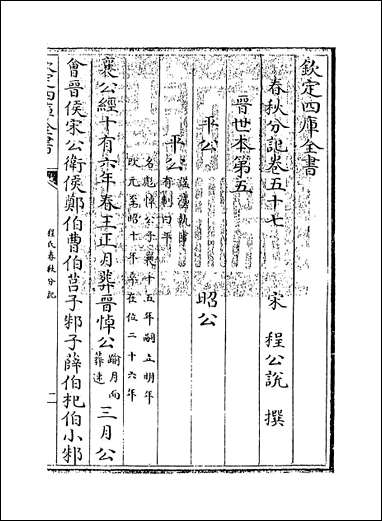 欽定四庫全書
春秋分記卷五十七
宋 程公説 撰
晉世本第五
平公 昭公
平公
諡灋執事有制曰平
名彪悼公子襄十五年嗣立明年
改元至昭十年卒在位二十六年
襄公經十有六年春王正月葬晉悼公踰月而葬速三月公
會晉侯宋公衛侯鄭伯曹伯莒子邾子薛伯杞伯小邾
欽定四庫全書
程氏春秋分記